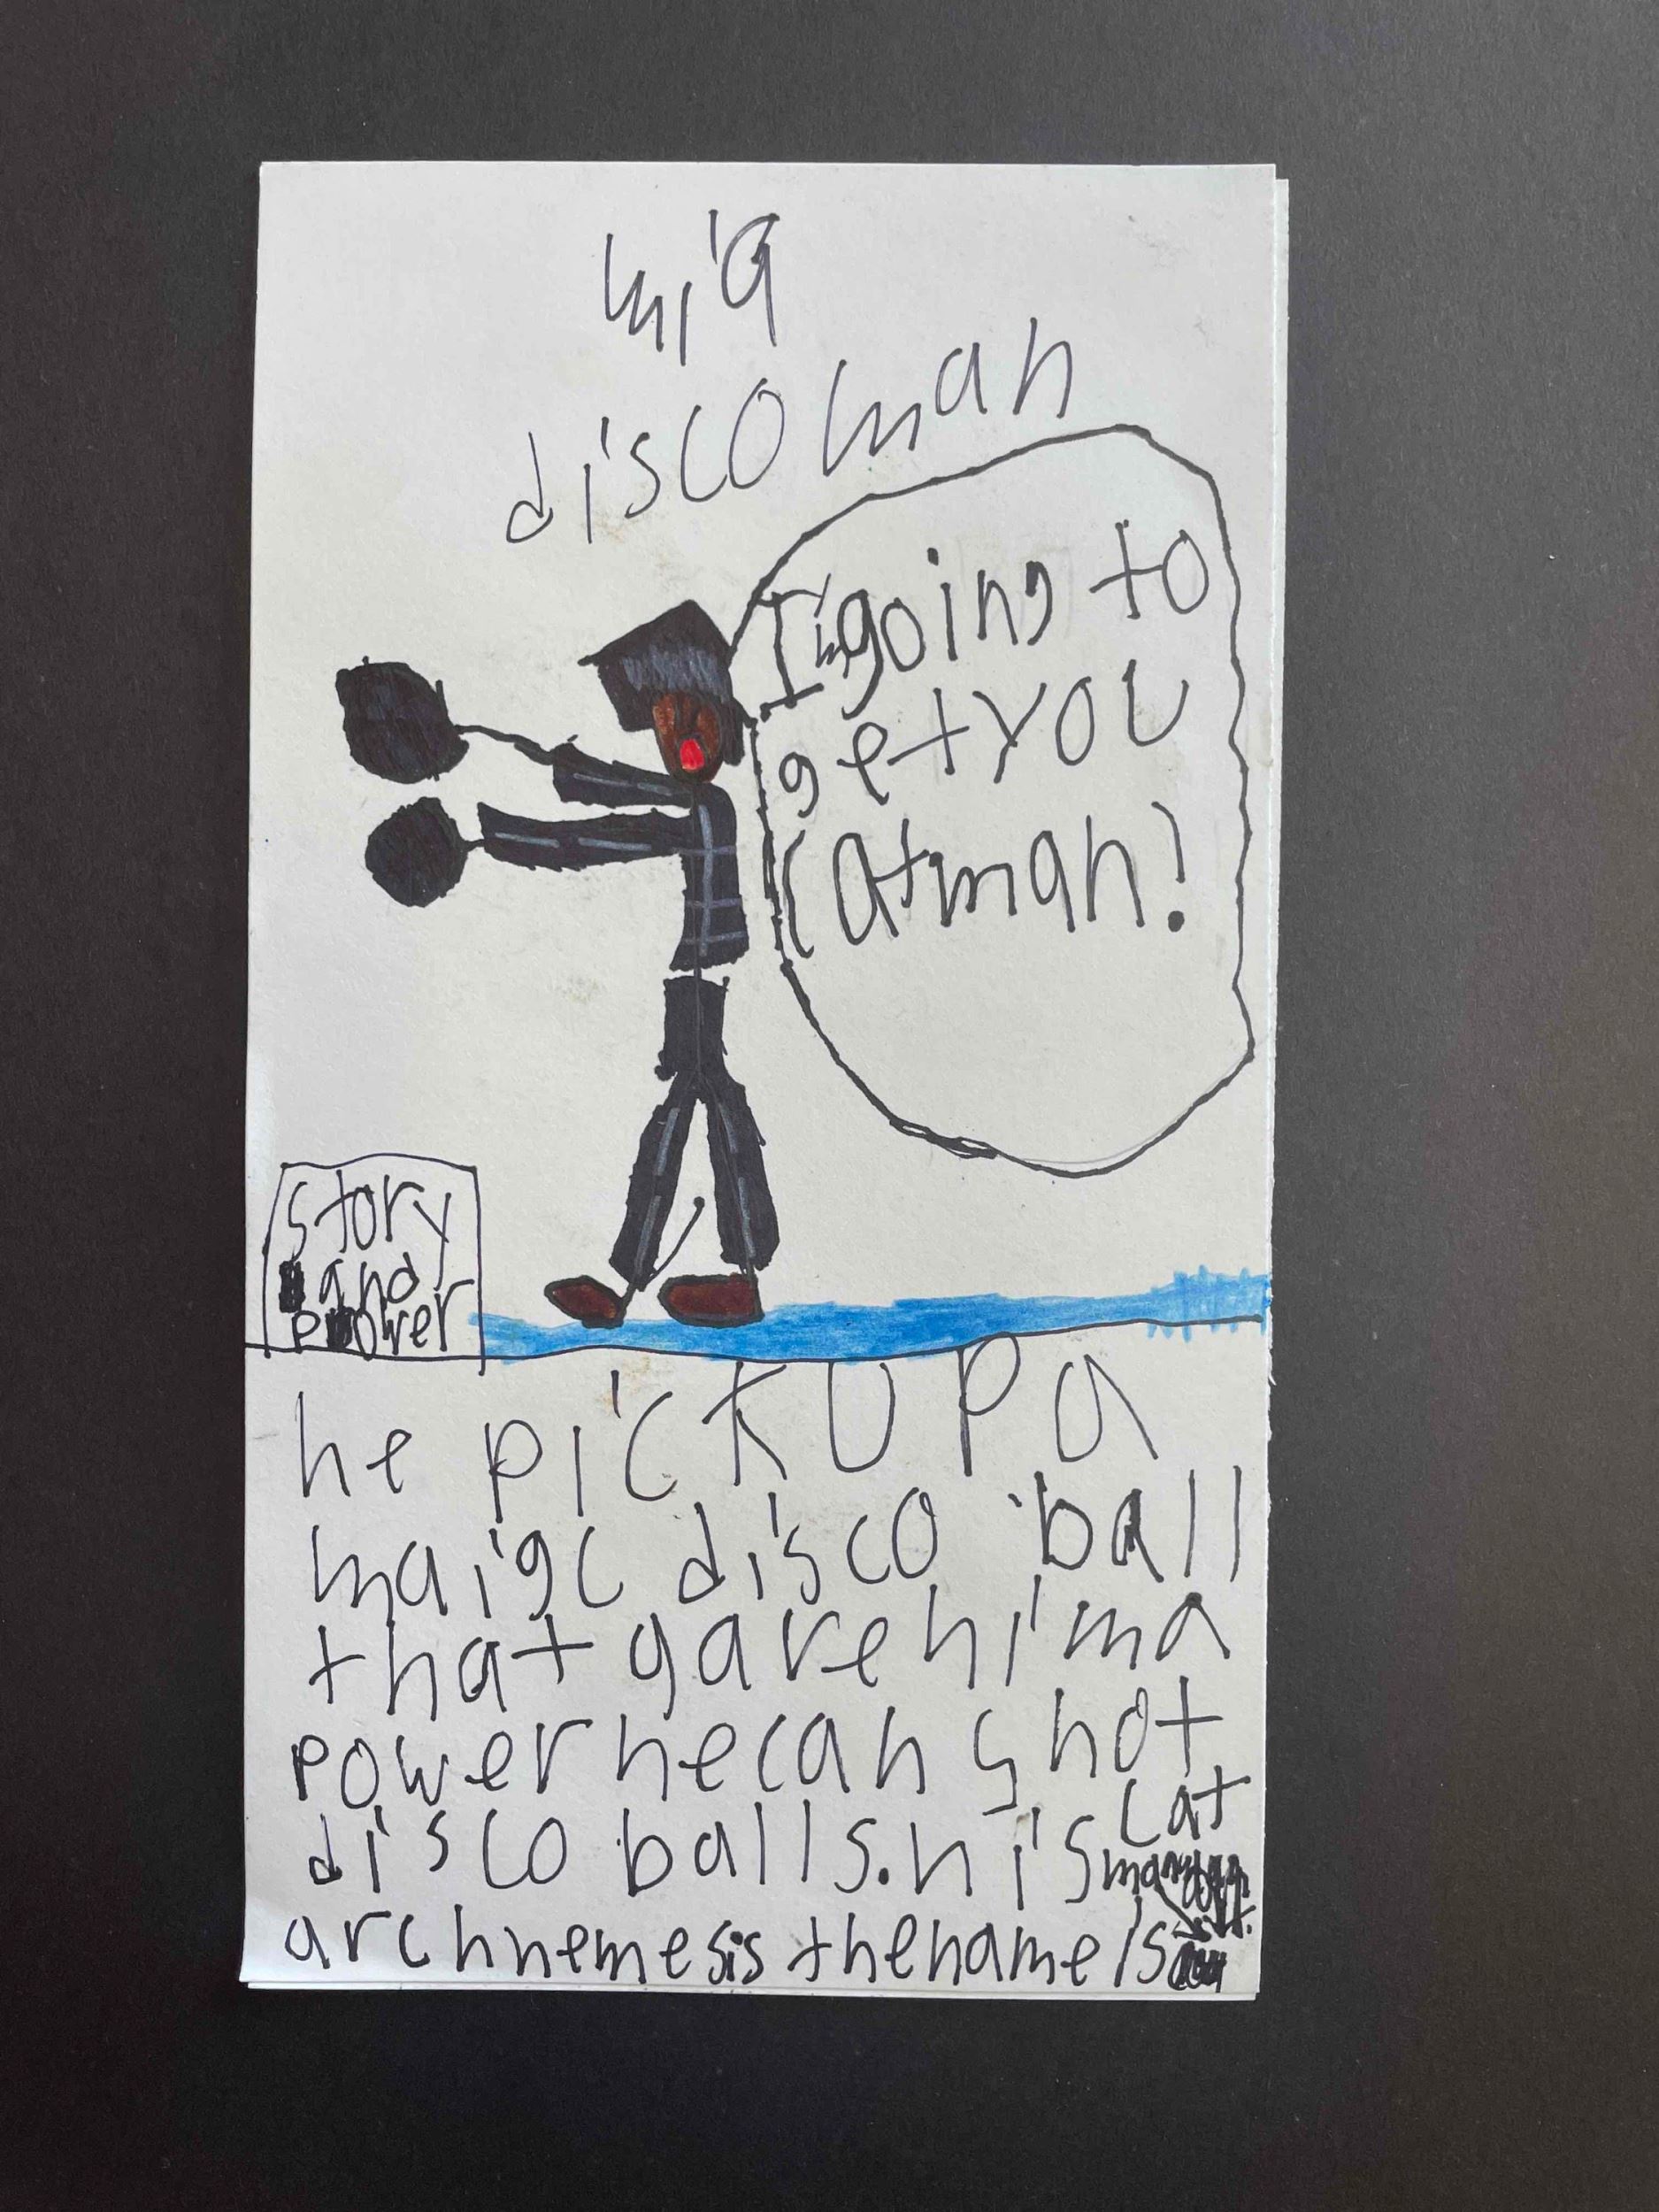 mia
disco man
I'm going to
get you
catman!
story
and
power
he pick up a
maigc disco ball
that gave him a
power he can shot
disco balls. his cat
man
archnemesis the name is